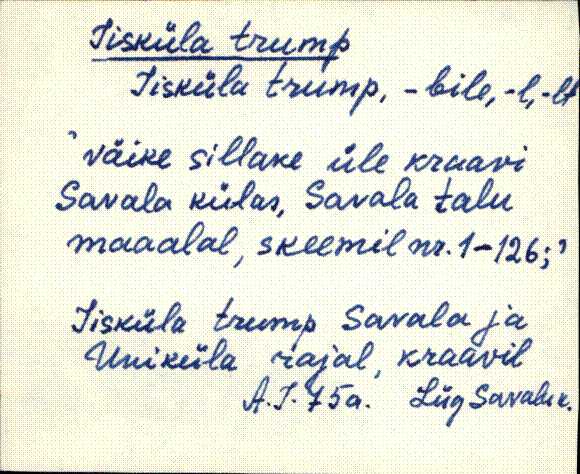 Iisküla trump
Iisküla trump, -bile, -l, -lt
'väike sillake üle kraavi
Savala külas, Savala talu
maaalal, skeemil nr. 1-126;'
Iisküla trump Savala ja
Uniküla rajal, kraavil
A.I. 75a. Lüg Savala k.